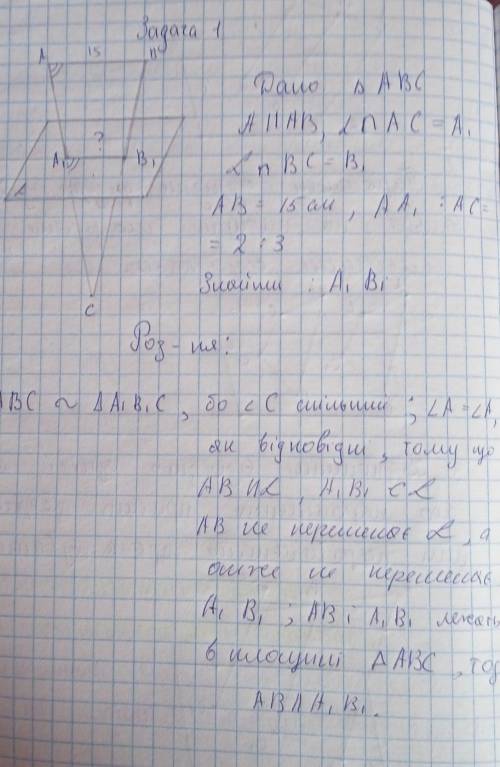 Задача 1
A 15 B
Дано △ ABC
α ∥ AB, α ∩ AC = A₁
? A₁ B₁
α
α ∩ BC = B₁
AB = 15 см, AA₁ : AC =
= 2 : 3
Знайти : A₁ B₁
C
Роз-ня:
ABC ~ △A₁B₁C, бо ∠C спільний; ∠A = ∠A₁
як відповідні, тому що
AB ∥ α, A₁B₁ ⊂ α
AB не перетинає α, а
отже не перетинає
A₁ B₁; AB і A₁B₁ лежать
в площині △ABC, тоді
AB ∥ A₁ B₁.